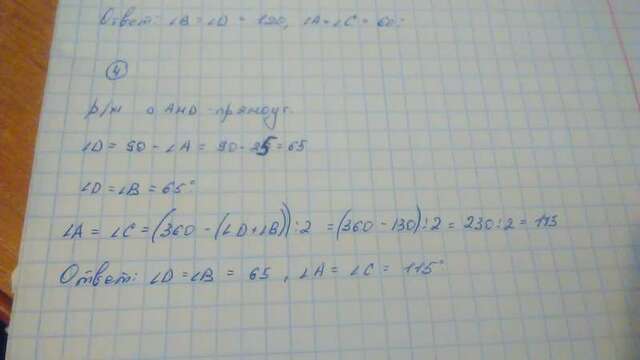 Ответ: ∠B = ∠D = 120, ∠A = ∠C = 60°
4
р/м △ AHD - прямоуг.
∠D = 90 - ∠A = 90 - 25 = 65
∠D = ∠B = 65°
∠A = ∠C = (360 - (∠D + ∠B)) : 2 = (360 - 130) : 2 = 230 : 2 = 115
Ответ: ∠D = ∠B = 65, ∠A = ∠C = 115°